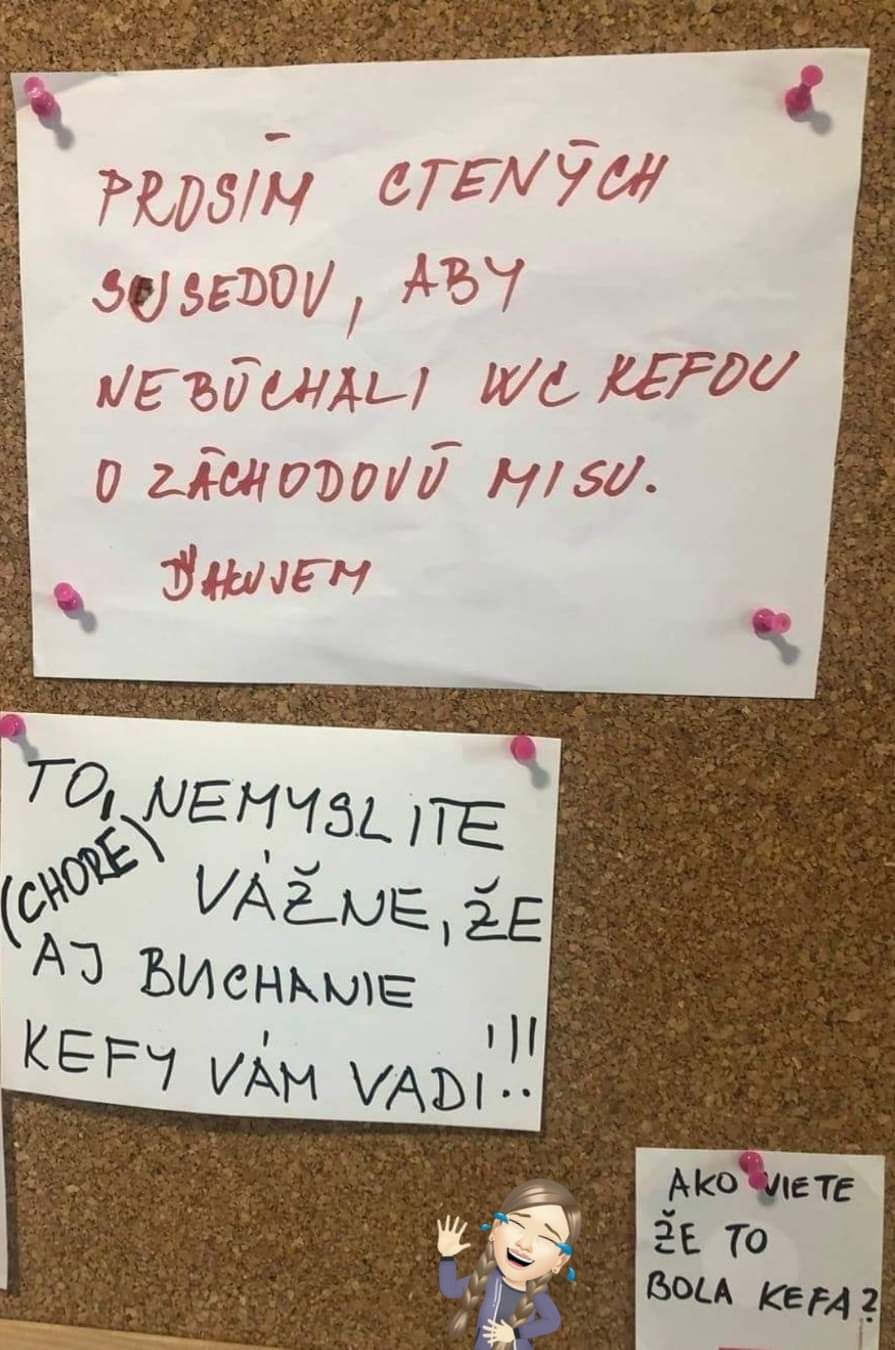 PROSÍM CTENÝCH
SUSEDOV, ABY
NEBÚCHALI WC KEFOU
O ZÁCHODOVÚ MISU.
ĎAKUJEM
TO, NEMYSLITE
(CHORE)
VÁŽNE, ŽE
AJ BUCHANIE
KEFY VÁM VADÍ!!!
AKO VIETE
ŽE TO
BOLA KEFA?